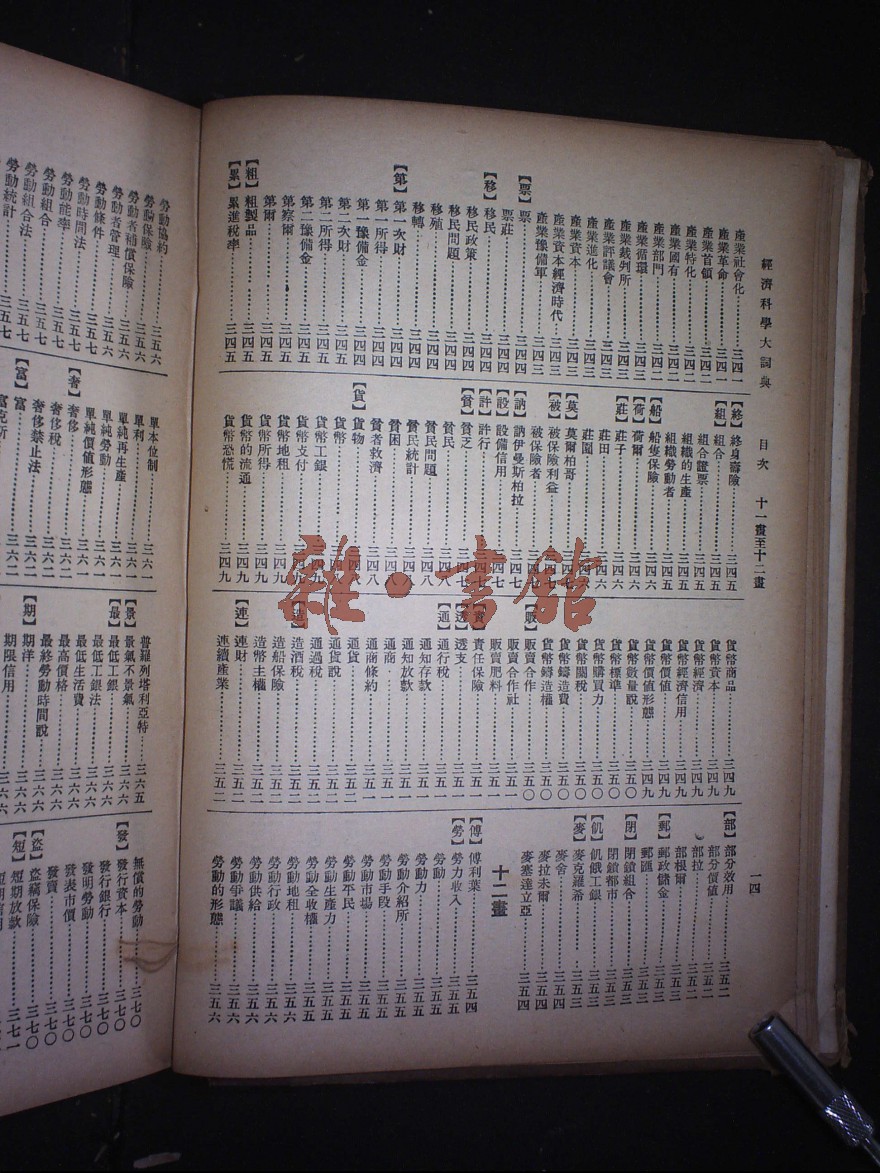 經濟科學大詞典 目次 十一畫至十二畫 一四
產業社會化……三四一
產業革命……三四一
產業首領……三四二
產業特化……三四二
產業國有……三四二
產業部門……三四二
產業循環……三四二
產業裁判所……三四三
產業評議會……三四三
產業進化……三四三
產業資本……三四三
產業資本經濟時代……三四三
產業豫備軍……三四三
【票】票……三四四
票莊……三四四
【移】移民……三四四
移民政策……三四四
移民問題……三四四
移殖……三四四
移轉……三四四
【第】第一次財……三四四
第一所得……三四四
第一豫備金……三四四
第二次財……三四五
第二所得……三四五
第二豫備金……三四五
第察爾……三四五
第爾……三四五
【粗】粗製品……三四五
【累】累進稅率……三四五
【終】終身壽險……三四五
【組】組合……三四五
組合證票……三四五
組織的生產……三四五
組織勞動者……三四五
【船】船隻保險……三四六
【荷】荷爾……三四六
【莊】莊子……三四六
莊田……三四六
莊園……三四六
【莫】莫爾柏哥……三四七
【被】被保險利益……三四七
被保險者……三四七
【訥】訥伊曼斯柏拉……三四七
【設】設備信用……三四七
【許】許行……三四七
【貧】貧乏……三四七
貧民……三四八
貧民問題……三四八
貧民統計……三四八
貧困……三四八
貧者救濟……三四八
【貨】貨物……三四八
貨幣……三四八
貨幣工銀……三四九
貨幣支付……三四九
貨幣地租……三四九
貨幣所得……三四九
貨幣的流通……三四九
貨幣恐慌……三四九
貨幣商品……三四九
貨幣資本……三四九
貨幣經濟……三四九
貨幣經濟信用……三四九
貨幣價值……三四九
貨幣價值形態……三四九
貨幣數量說……三五〇
貨幣標準……三五〇
貨幣購買力……三五〇
貨幣關稅……三五〇
貨幣鑄造費……三五〇
貨幣鑄造權……三五〇
【販】販賣合作……三五〇
販賣合作社……三五一
販賣肥料……三五一
【責】責任保險……三五一
【透】透支……三五一
【通】通行稅……三五一
通知存款……三五一
通知放款……三五一
通商……三五一
通商條約……三五一
通貨……三五二
通貨說……三五二
通過稅……三五二
【造】造酒稅……三五二
造船保險……三五二
造幣主權……三五二
【連】連財……三五二
連續產業……三五二
【部】部分效用……三五二
部分價值……三五二
部拉……三五三
部根爾……三五三
【郵】郵政儲金……三五三
郵匯……三五三
【閉】閉鎖組合……三五三
閉鎖都市……三五三
【飢】飢俄工銀……三五三
【麥】麥克羅希……三五三
麥舍……三五四
麥拉朱爾……三五四
麥塞達立亞……三五四
十二畫
【傅】傅利葉……三五四
【勞】勞力收入……三五五
勞動……三五五
勞動力……三五五
勞動介紹所……三五五
勞動手段……三五五
勞動市場……三五五
勞動平民……三五五
勞動生產力……三五五
勞動全收權……三五五
勞動地租……三五六
勞動行政……三五五
勞動供給……三五五
勞動爭議……三五六
勞動的形態……三五六
勞動協約……三五六
勞動保險……三五六
勞動者補償保險……三五六
勞動者管理……三五六
勞動條件……三五七
勞動時間法……三五七
勞動能率……三五七
勞動組合……三五七
勞動組合法……三五七
勞動統計……三五七
單本位制……三六一
單利……三六一
單純再生產……三六一
單純勞動……三六一
單純價值形態……三六一
【奢】奢侈……三六一
奢侈稅……三六一
奢侈禁止法……三六二
【富】富……三六二
富克斯
普羅列塔利亞特……三六五
【景】景氣不景氣……三六六
【最】最低工銀……三六六
最低工銀法……三六六
最低生活費……三六六
最高價格……三六六
最終勞動時間說……三六六
【期】期洋……三六六
期限信用……三六六
無償的勞動……三七〇
【發】發行資本……三七〇
發行銀行……三七〇
發明勞動……三七〇
發表市價……三七〇
發賣……三七〇
【盜】盜竊保險……三七〇
【短】短期放款……三七一
雜·書館